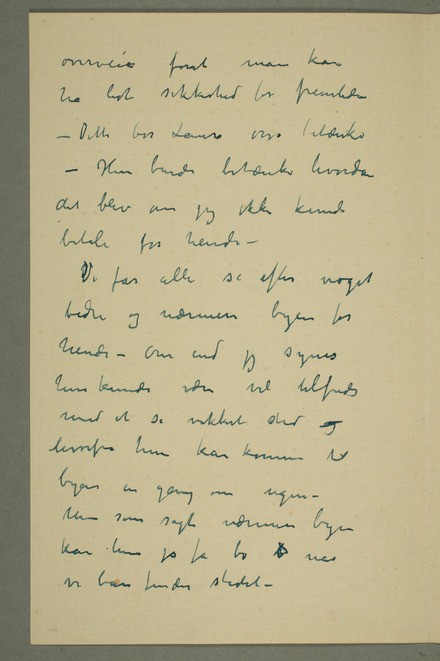 overveies forat man kan
ha lidt sikkerhed for fremtiden
– Dette bør Laura også betænke
– Hun burde betænke hvordan
det blev om jeg ikke kunde
betale for hende –
Vi får alle se efter noget
bedre og nærmere byen for
hende – Om end jeg synes
hun kunde være vel tilfreds
med et så vakkert sted og
hvorfra hun kan komme til
byen en gang om ugen –
Men som sagt nærmere byen
kan hun jo få bo når
vi bare finder stedet –